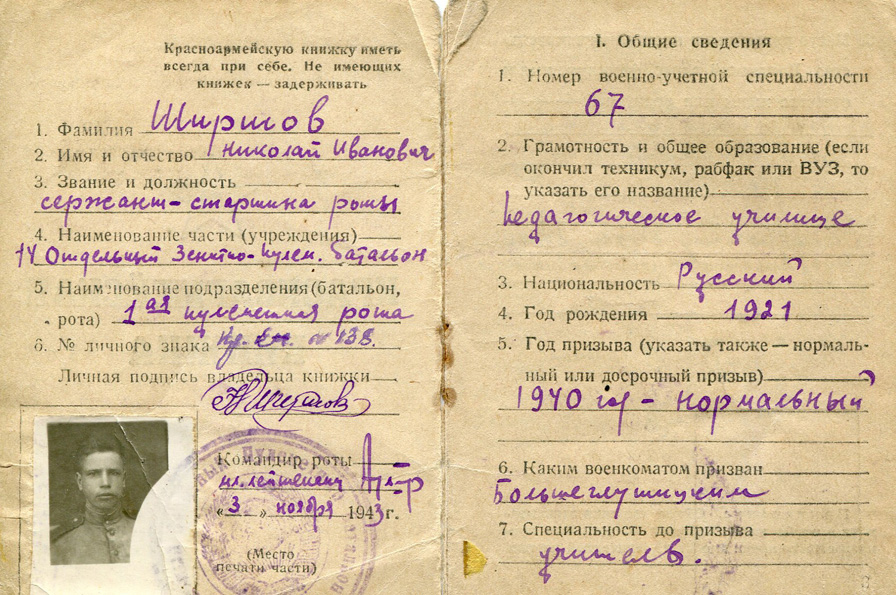 Красноармейскую книжку иметь
всегда при себе. Не имеющих
книжек — задерживать
1. Фамилия Ширшов
2. Имя и отчество Николай Иванович
3. Звание и должность
сержант - старшина роты
4. Наименование части (учреждения)
14 Отдельный Зенитно-пулем. батальон
5. Наименование подразделения (батальон,
рота) 1ая пулеметная рота
6. № личного знака № 138.
Личная подпись владельца книжки
Командир роты
мл. лейтенант
«3» ноября 1943 г.
(Место
печати части)
I. Общие сведения
1. Номер военно-учетной специальности
67
2. Грамотность и общее образование (если
окончил техникум, рабфак или ВУЗ, то
указать его название)
Педагогическое училище
3. Национальность Русский
4. Год рождения 1921
5. Год призыва (указать также — нормаль-
ный или досрочный призыв)
1940 год - нормальный
6. Каким военкоматом призван
Большеглушицким
7. Специальность до призыва
учитель.